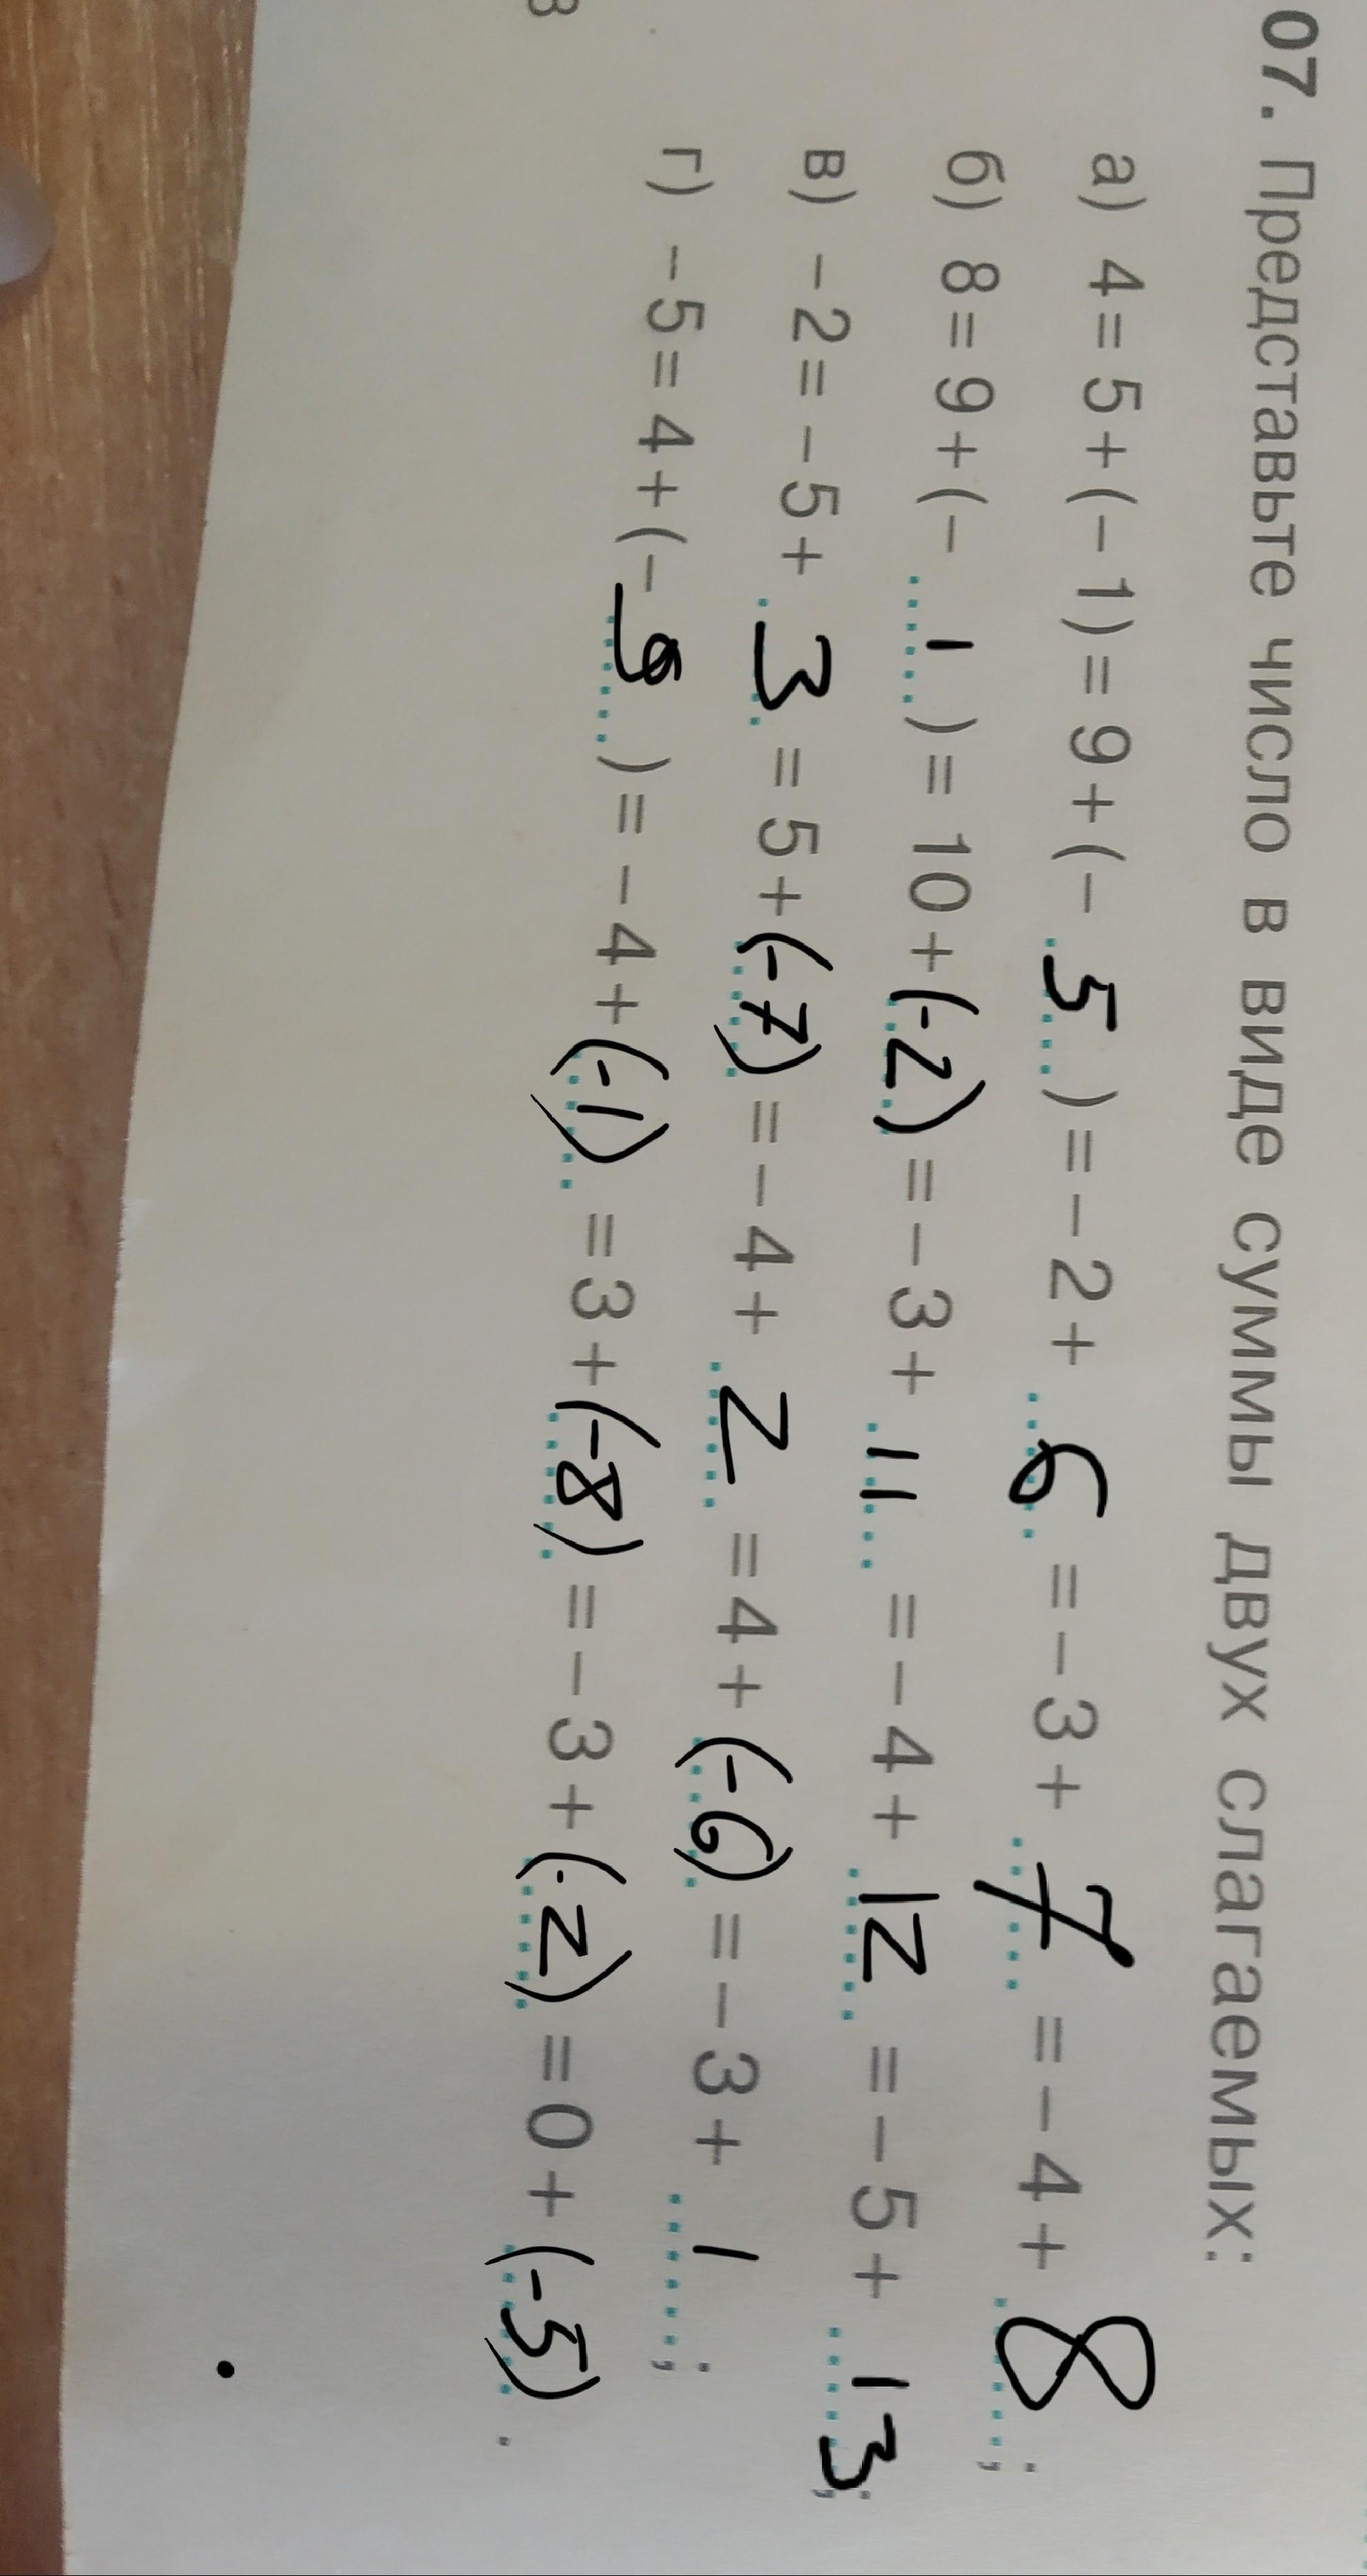 07. Представьте число в виде суммы двух слагаемых:
а) 4 = 5 + (- 1) = 9 + (- 5) = - 2 + 6 = - 3 + 7 = - 4 + 8;
б) 8 = 9 + (- 1) = 10 + (-2) = - 3 + 11 = - 4 + 12 = - 5 + 13;
в) - 2 = - 5 + 3 = 5 + (-7) = - 4 + 2 = 4 + (-6) = - 3 + 1;
г) - 5 = 4 + (- 9) = - 4 + (-1) = 3 + (-8) = - 3 + (-2) = 0 + (-5).